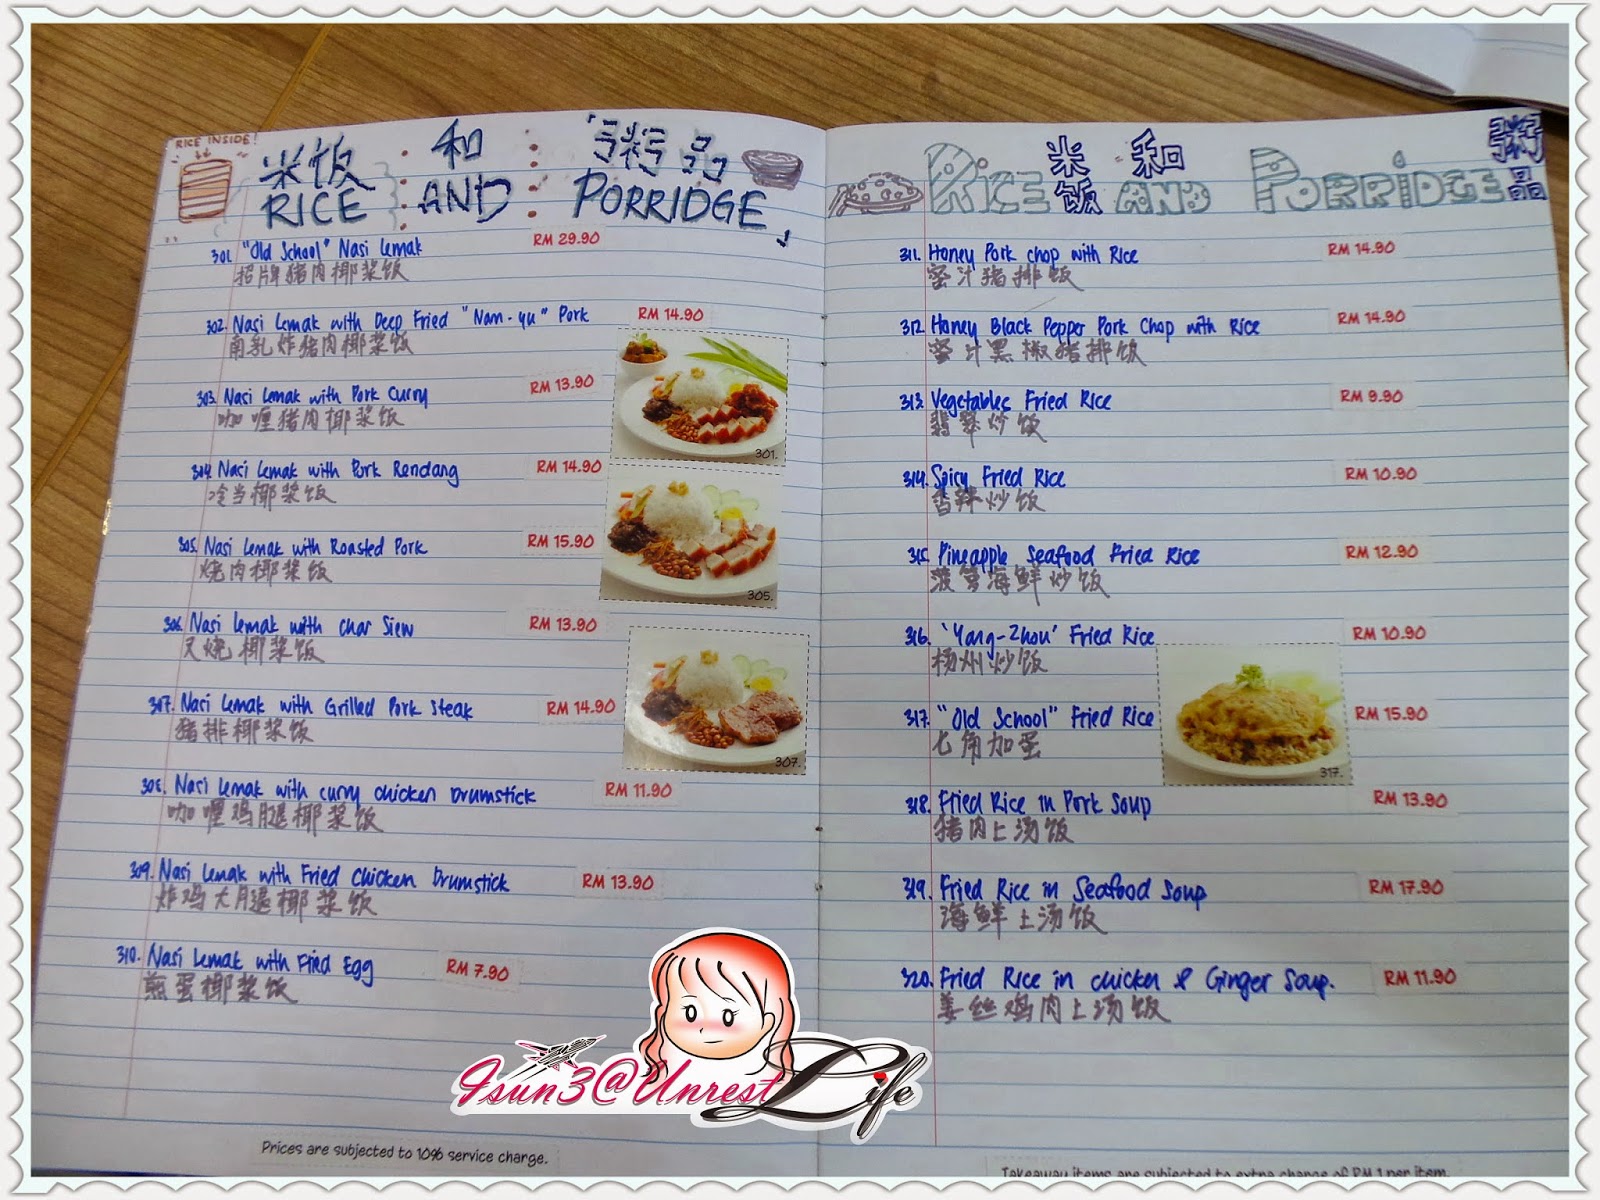 RICE INSIDE!
米饭 和 粥品
RICE AND PORRIDGE
301. "Old School" Nasi Lemak RM 29.90
招牌猪肉椰浆饭
302. Nasi Lemak with Deep Fried "Nam-yu" Pork RM 14.90
南乳炸猪肉椰浆饭
303. Nasi Lemak with Pork Curry RM 13.90
咖喱猪肉椰浆饭
304. Nasi Lemak with Pork Rendang RM 14.90
冷当椰浆饭
305. Nasi Lemak with Roasted Pork RM 15.90
烧肉椰浆饭
306. Nasi Lemak with Char Siew RM 13.90
叉烧椰浆饭
307. Nasi Lemak with Grilled Pork Steak RM 14.90
猪排椰浆饭
308. Nasi Lemak with curry chicken Drumstick RM 11.90
咖喱鸡腿椰浆饭
309. Nasi Lemak with Fried Chicken Drumstick RM 13.90
炸鸡大腿椰浆饭
310. Nasi Lemak with Fried Egg RM 7.90
煎蛋椰浆饭
301.
305.
307.
Prices are subjected to 10% service charge.
RICE 米饭 和 AND PORRIDGE 粥品
311. Honey Pork chop with Rice RM 14.90
蜜汁猪排饭
312. Honey Black Pepper Pork Chop with Rice RM 14.90
蜜汁黑椒猪排饭
313. Vegetables Fried Rice RM 9.90
翡翠炒饭
314. Spicy Fried Rice RM 10.90
香辣炒饭
315. Pineapple Seafood Fried Rice RM 12.90
菠萝海鲜炒饭
316. 'Yang-Zhou' Fried Rice RM 10.90
杨州炒饭
317. "Old School" Fried Rice RM 15.90
七角加蛋
317.
318. Fried Rice in Pork Soup RM 13.90
猪肉上汤饭
319. Fried Rice in Seafood Soup RM 17.90
海鲜上汤饭
320. Fried Rice in chicken & Ginger Soup. RM 11.90
姜丝鸡肉上汤饭
Takeaway items are subjected to extra charge of RM 1 per item.
Isun3@Unrest Life